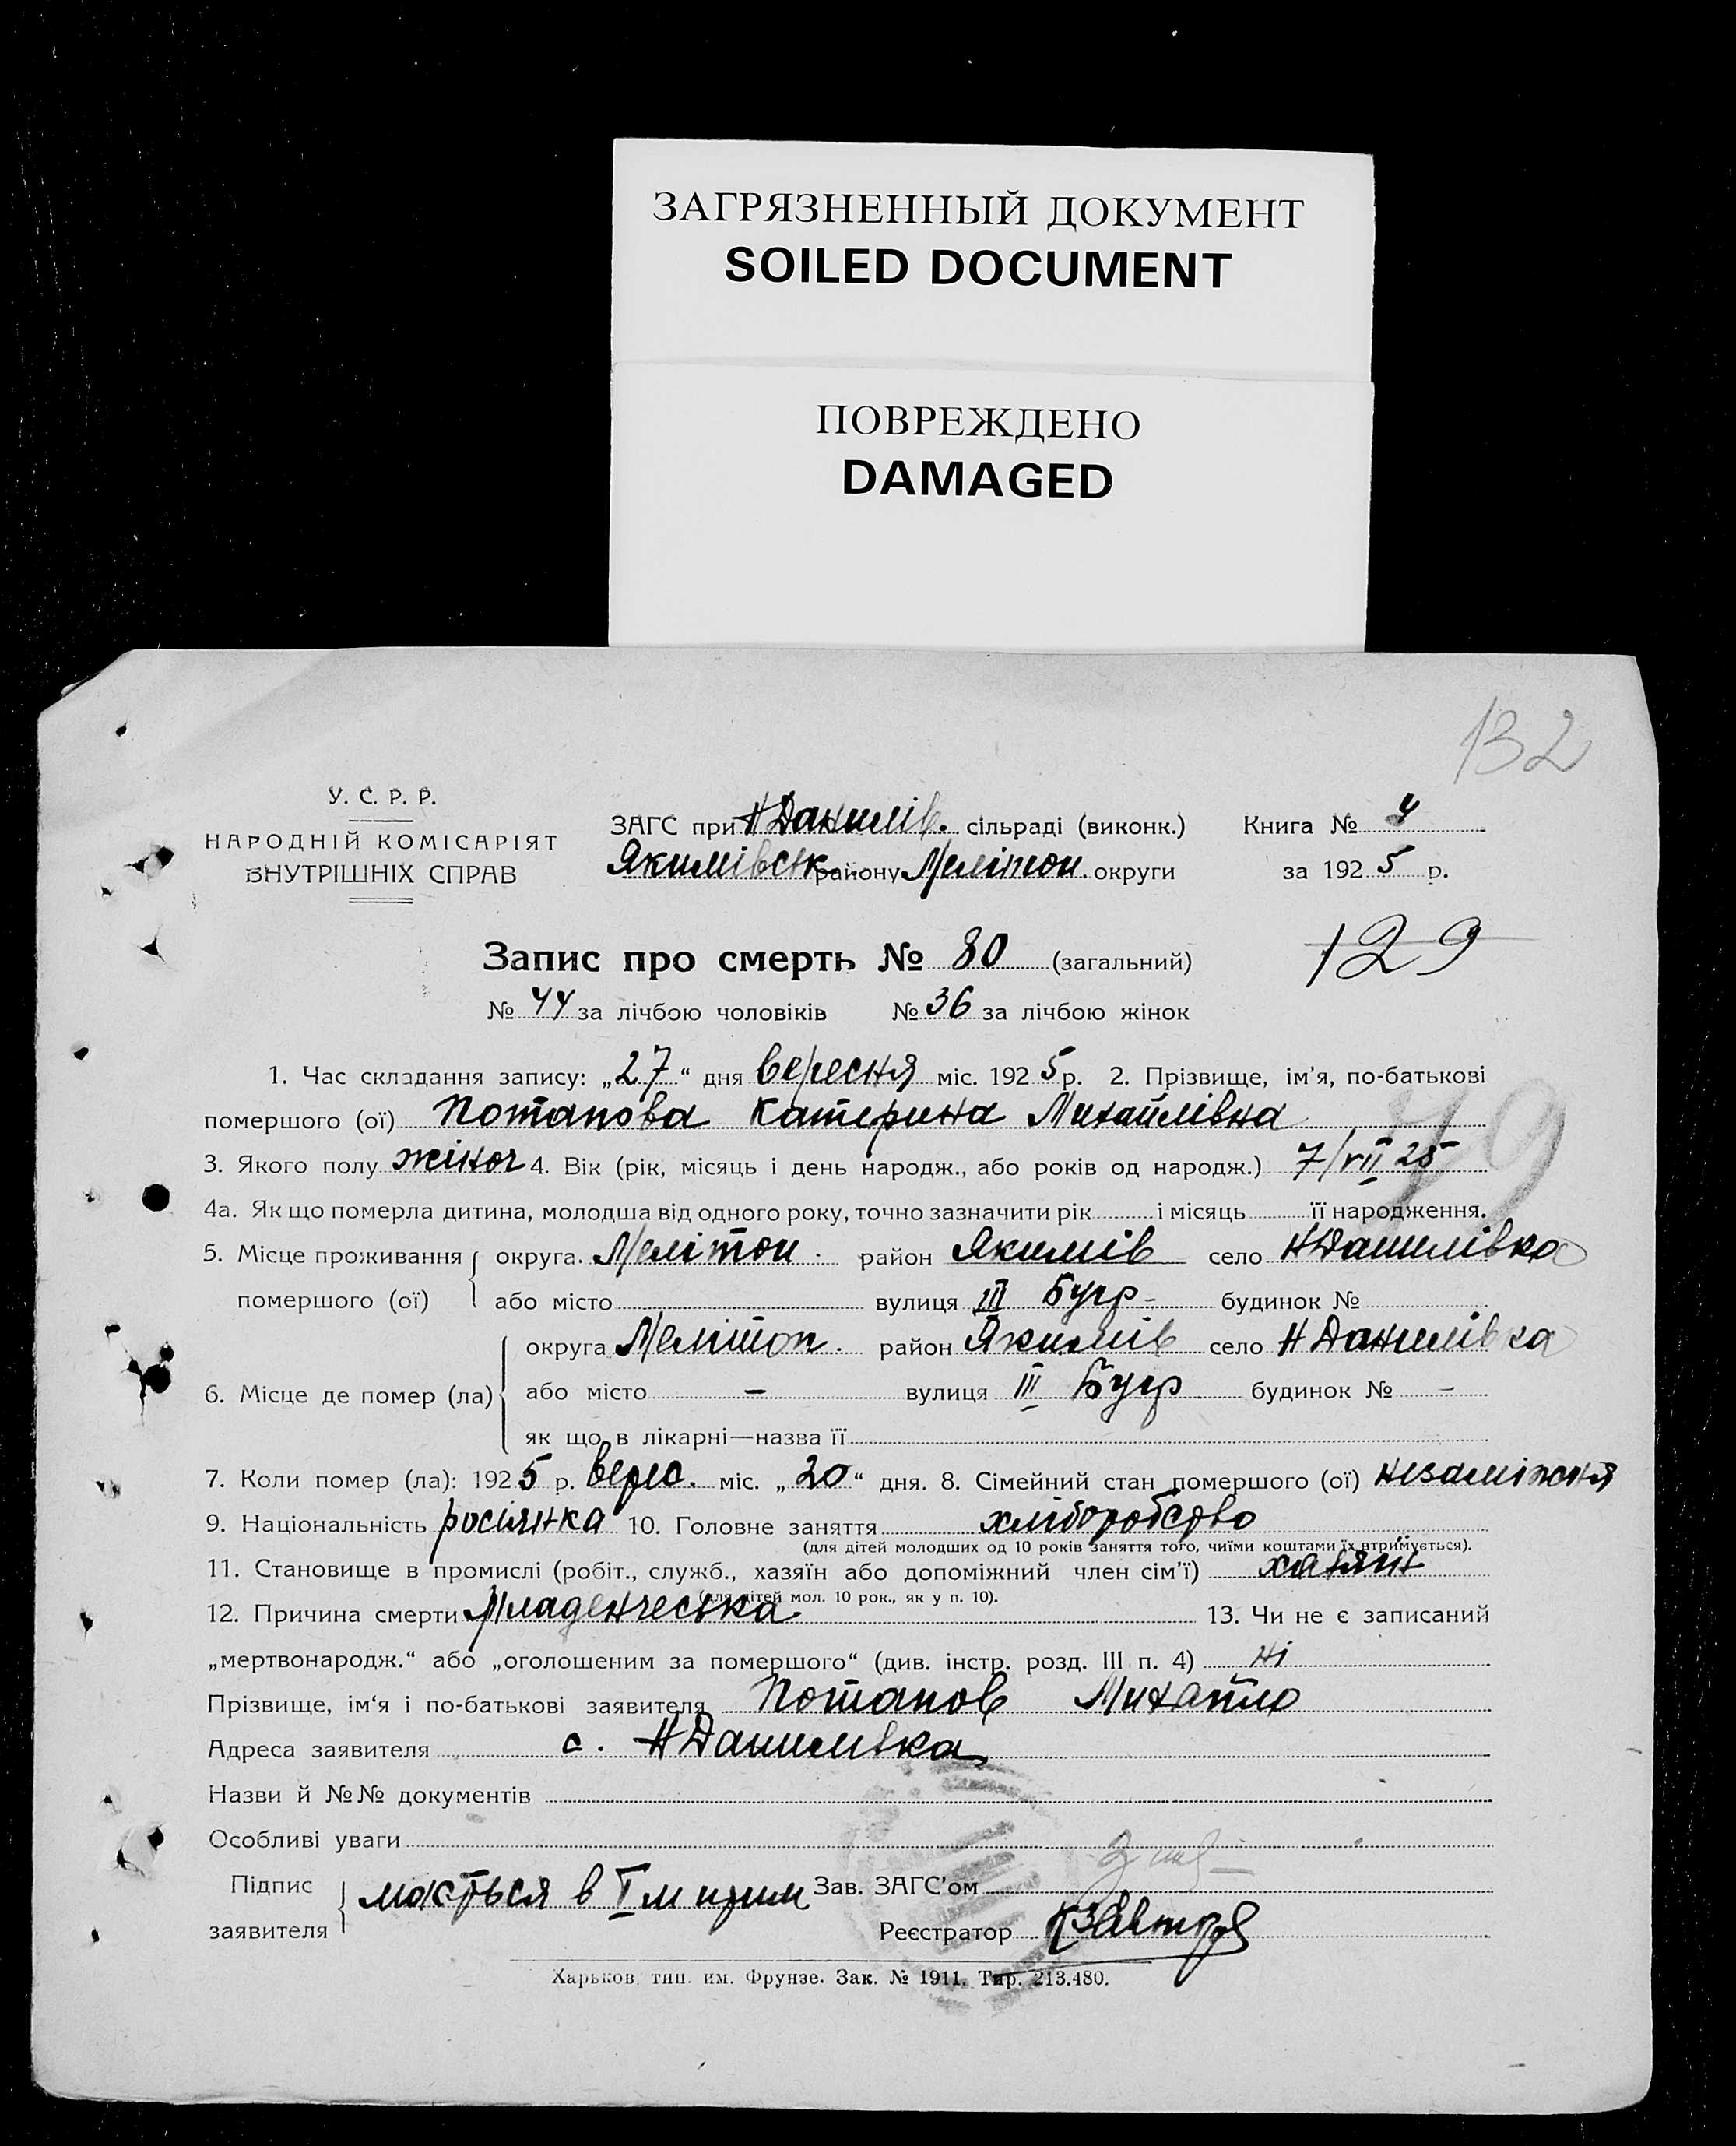 ЗАГРЯЗНЕННЫЙ ДОКУМЕНТ
SOILED DOCUMENT
ПОВРЕЖДЕНО
DAMAGED
132
У. С. Р. Р.
НАРОДНІЙ КОМІСАРІЯТ
ВНУТРІШНІХ СПРАВ
ЗАГС при НДанилів. сільраді (виконк.)
Якимівськ району Мелітоп. округи
Книга № 4
за 1925 р.
Запис про смерть № 80 (загальний)
129
№ 44 за лічбою чоловіків № 36 за лічбою жінок
79
1. Час складання запису: „27“ дня вересня міс. 1925 р. 2. Прізвище, ім’я, по-батькові
помершого (ої) Потапова Катерина Михайлівна
3. Якого полу жіноч 4. Вік (рік, місяць і день народж., або років од народж.) 7/VII 25
4а. Як що померла дитина, молодша від одного року, точно зазначити рік і місяць її народження.
5. Місце проживання помершого (ої) округа. Мелітоп. район Якимів село НДанилівка
або місто вулиця III Бугр- будинок №
6. Місце де помер (ла) округа Мелітоп. район Якимів село НДанилівка
або місто – вулиця III Бугр будинок № –
як що в лікарні—назва її
7. Коли помер (ла): 1925 р. верес. міс. „20“ дня. 8. Сімейний стан помершого (ої) незаміжня
9. Національність росіянка 10. Головне заняття хліборобство
(для дітей молодших од 10 років заняття того, чиїми коштами їх втримується).
11. Становище в промислі (робіт., служб., хазяїн або допоміжний член сім’ї) хазяін
(для дітей мол. 10 рок., як у п. 10).
12. Причина смерти Младенчеська 13. Чи не є записаний
„мертвонародж.“ або „оголошеним за помершого“ (див. інстр. розд. III п. 4) ні
Прізвище, ім‘я і по-батькові заявителя Потапов Михайло
Адреса заявителя с. НДанилівка
Назви й №№ документів
Особливі уваги
Підпис заявителя мається в I м прим
Зав. ЗАГС’ом
Реєстратор
Харьков, тип. им. Фрунзе. Зак. № 1911. Тир. 213.480.